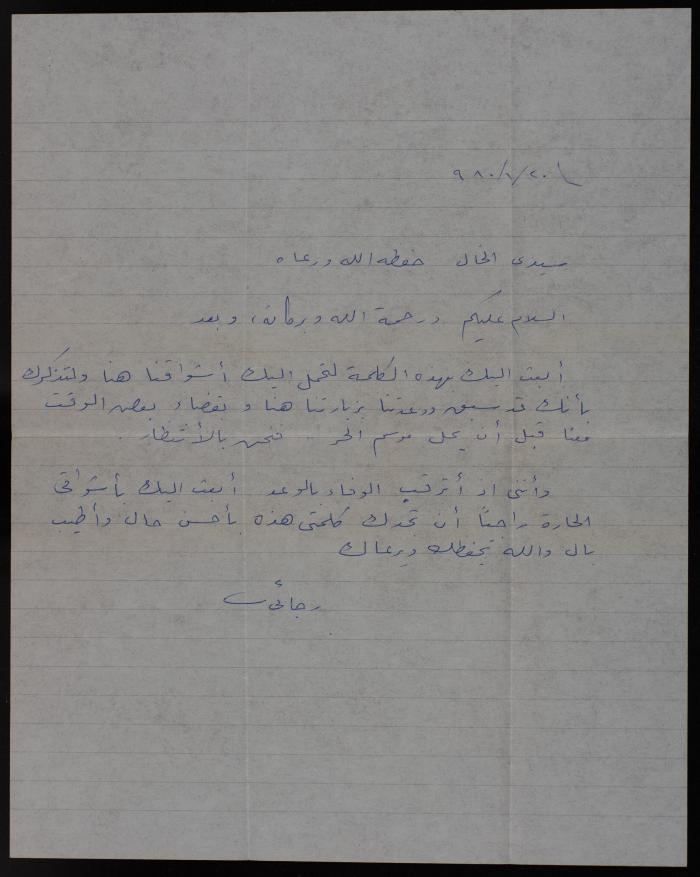 ٩٨٠/١/٢٠
سيدى الخال حفظه الله ورعاه
السلام عليكم ورحمة الله وبركاته، وبعد
أبعث اليك بهذه الكلمة لتحمل اليك أشواقنا هنا ولتذكرك
بأنك قد سبق ووعدتنا بزيارتنا هنا وبقضاء بعض الوقت
معنا قبل أن يحل موسم الحر .. فنحن بالأنتظار .
وأننى اذ أترقب الوفاء بالوعد أبعث اليك بأشواقى
الحارة راجيًا أن تجدك كلمتى هذه بأحسن حال وأطيب
بال والله يحفظك ويرعاك
رجائى